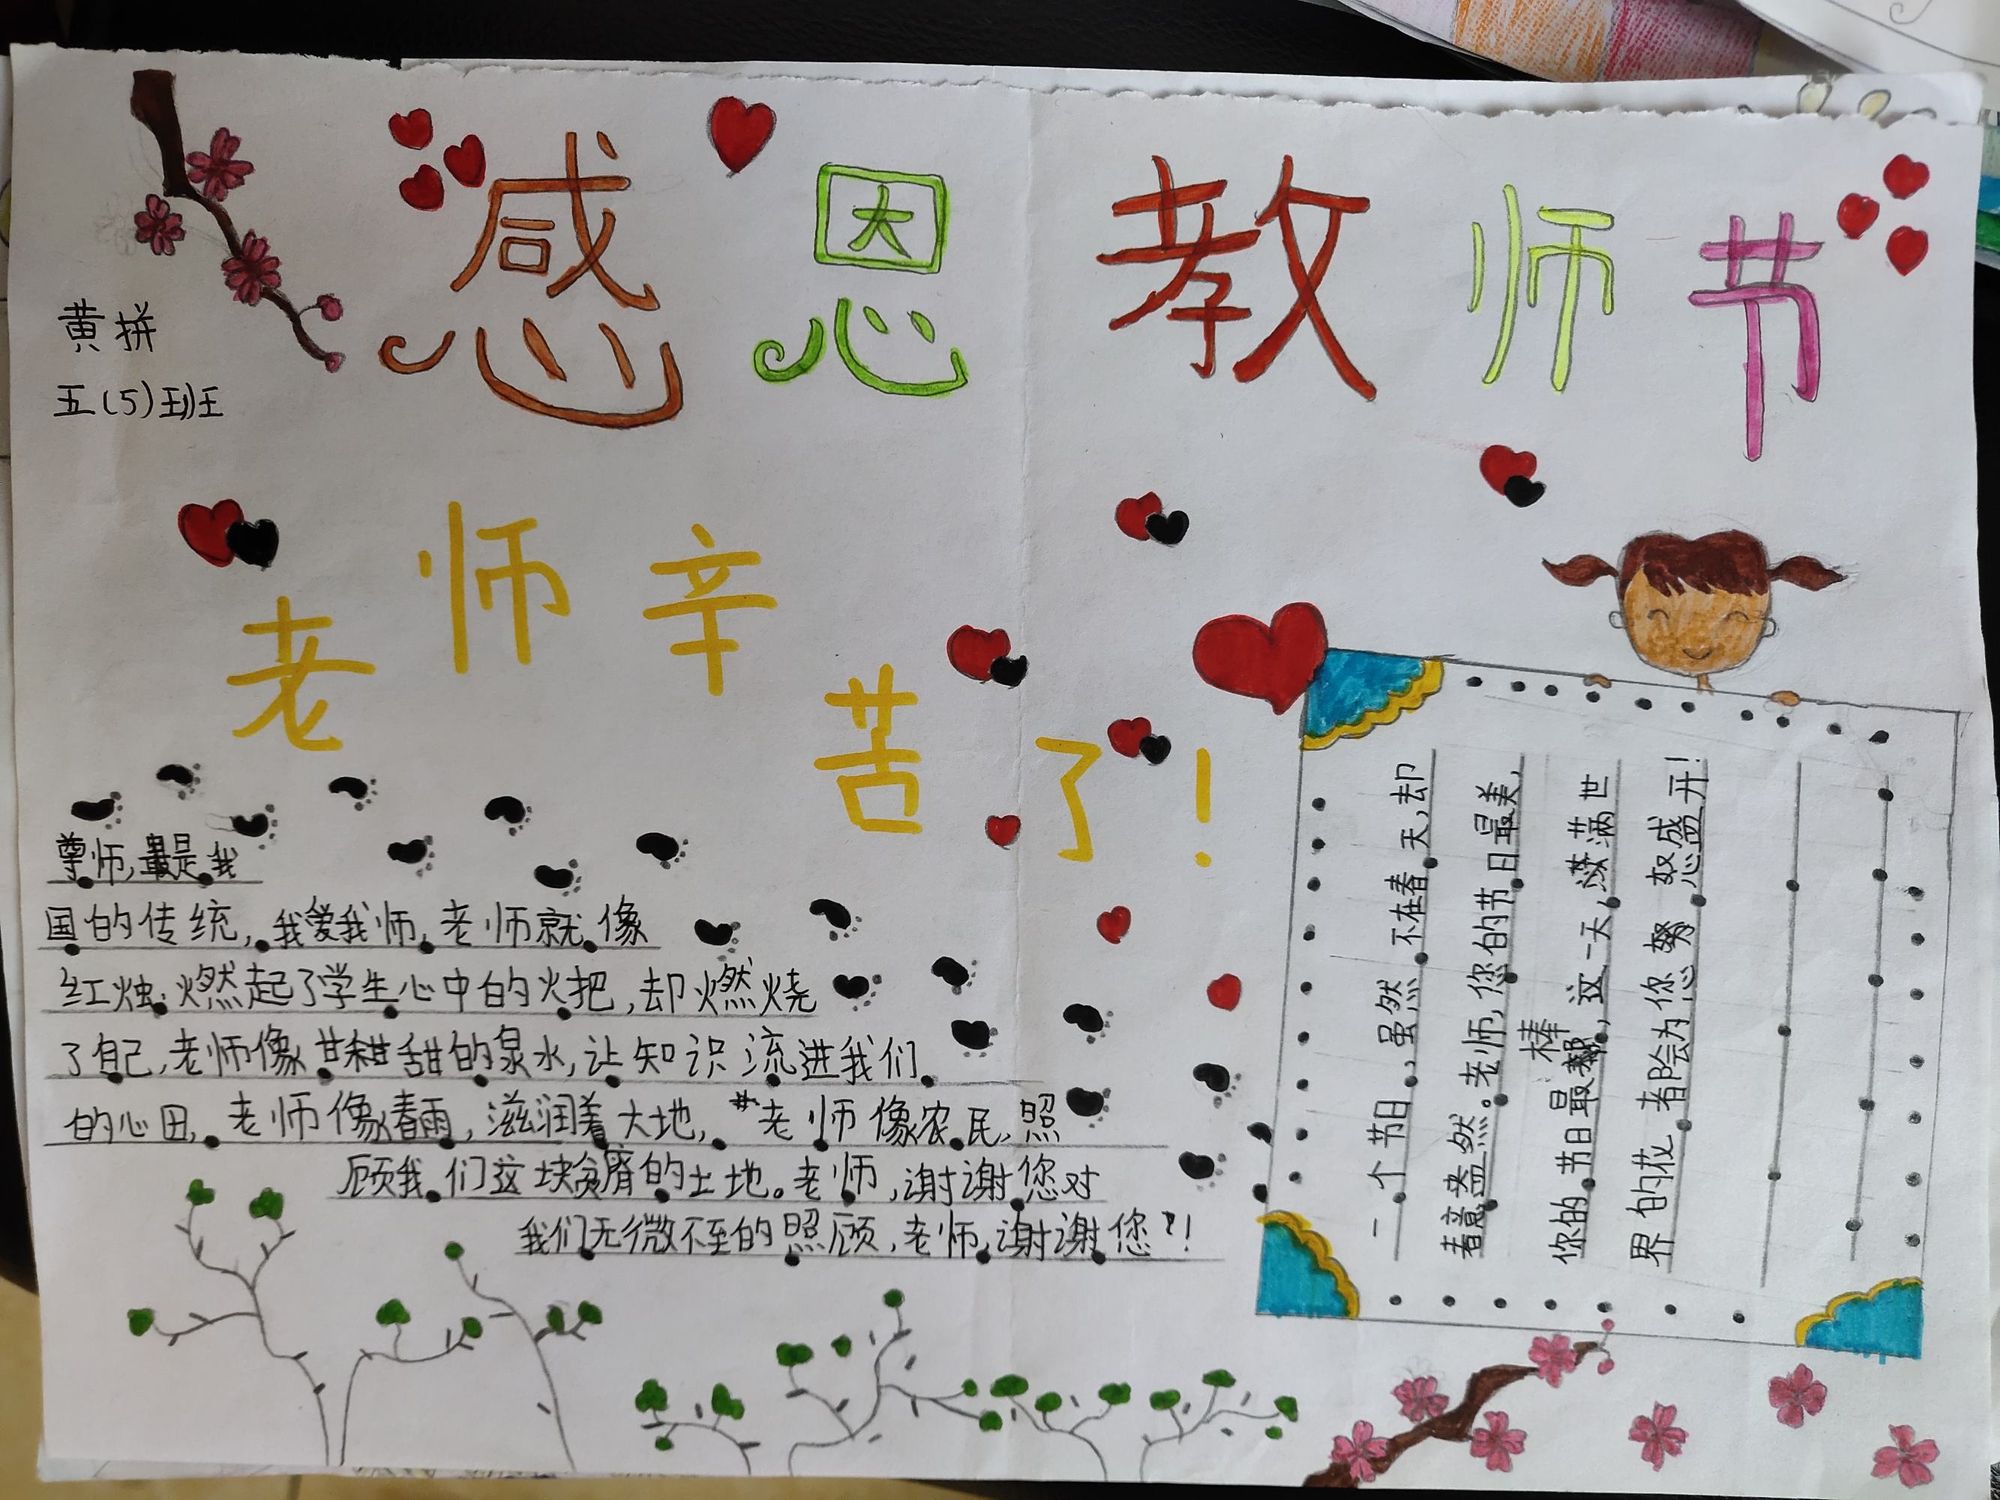 感恩教师节
黄拼
五(5)班
老师辛苦了!
尊师,最是我
国的传统,我爱我师,老师就像
红烛,燃起了学生心中的火把,却燃烧
了自己,老师像甘甜的泉水,让知识流进我们
的心田,老师像春雨,滋润着大地,老师像农民,照
顾我们这块贫瘠的土地。老师,谢谢您对
我们无微不至的照顾,老师,谢谢您!
一个节日,虽然不在春天,却
春意盎然。老师,您的节日最美,
你的节日最棒,这一天,满世
界的花,都会为你怒盛开!